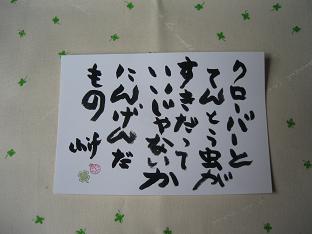 クローバーと
てんとう虫が
すきだって
いいじゃないか
にんげんだ
もの